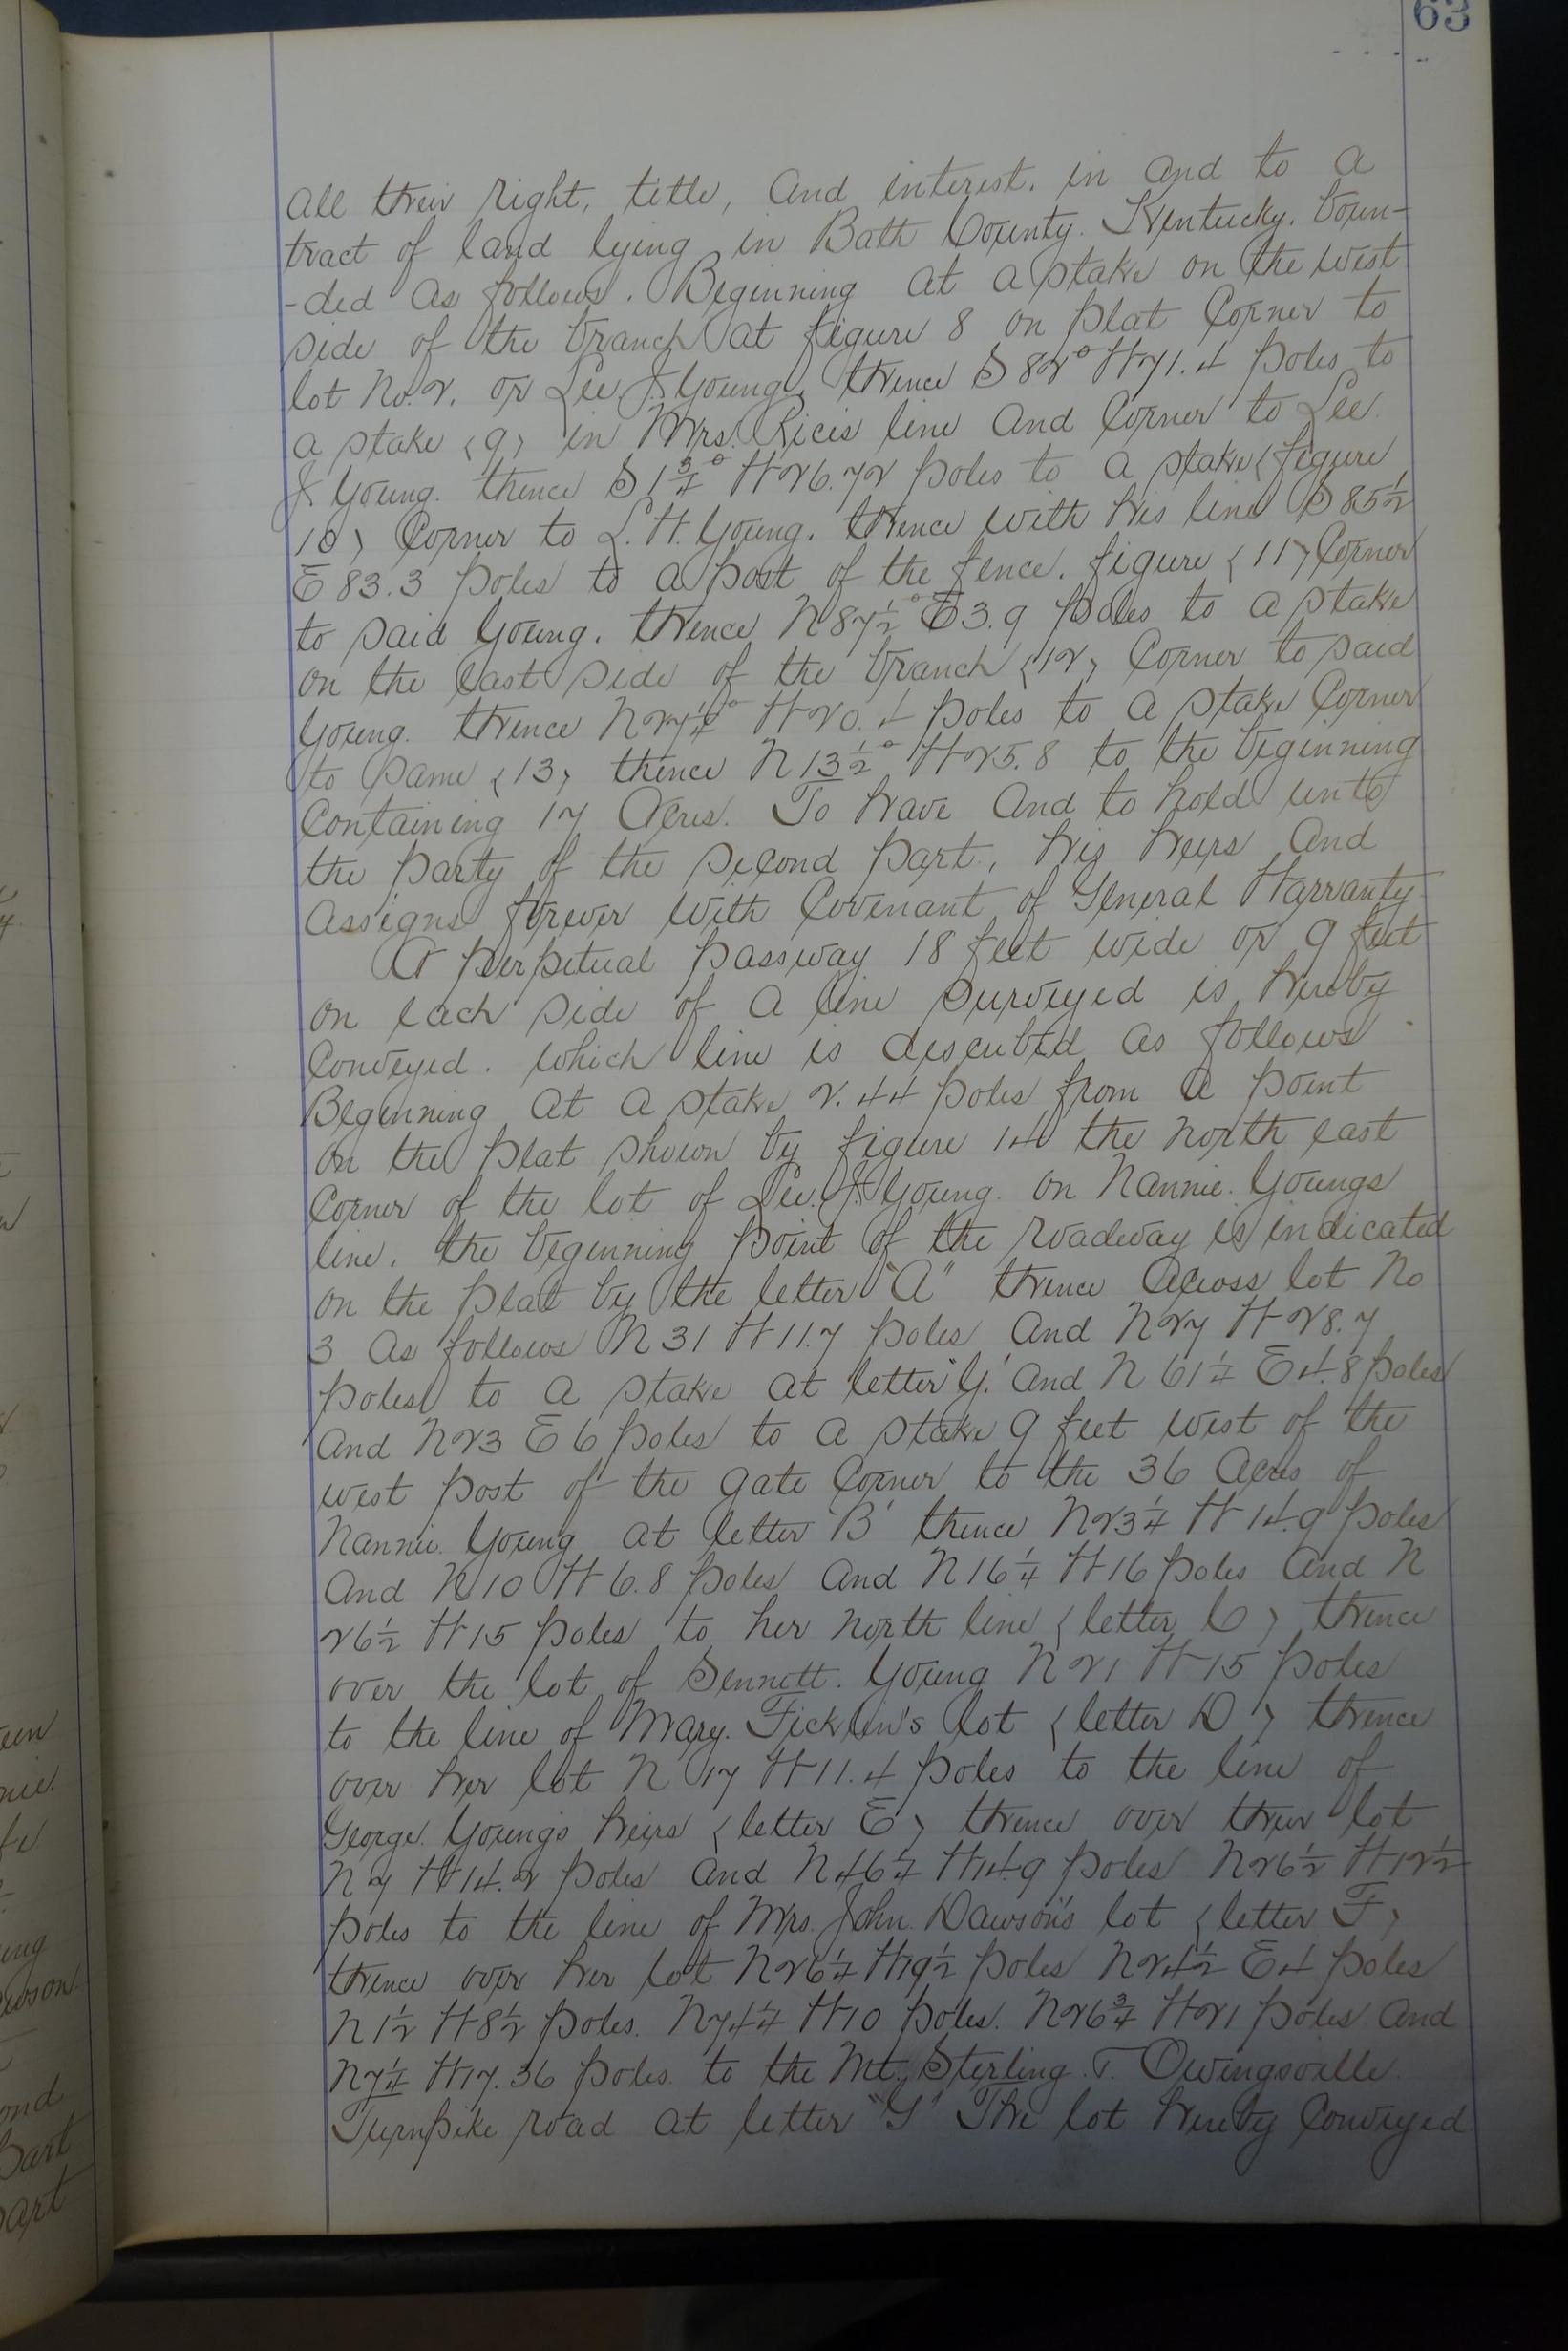 63
all their right, title, and interest, in and to a
tract of land lying in Bath County. Kentucky. boun-
-ded as follows. Beginning at a stake on the west
side of the branch at figure 8 on plat Corner to
lot No. 2. or Lee J. Young, thence S 82° W 71.4 poles to
a stake (9) in Mrs. Rices line and Corner to Lee
J. Young. thence S 1 3/4° W 26.72 poles to a stake (figure
10) Corner to L. W. Young. thence with his line S 85 1/2
E 83.3 poles to a post of the fence. figure (11) Corner
to said Young. thence N 87 1/2° E 3.9 poles to a stake
on the East side of the branch (12) Corner to said
Young. thence N 27 1/4° W 20.4 poles to a stake Corner
to same (13) thence N 13 1/2° W 25.8 to the beginning
Containing 17 Acres. To have and to hold unto
the party of the second part, his heirs and
assigns forever with Covenant of General Warranty
A perpetual passway 18 feet wide or 9 feet
on each side of a line surveyed is hereby
Conveyed. which line is described as follows
Beginning at a stake 2.44 poles from a point
on the plat shown by figure 14 the north east
Corner of the lot of Lee. J. Young. on Nannie. Youngs
line. the beginning point of the roadway is indicated
on the plat by the letter "A" thence Across lot No
3 as follows N 31 W 11.7 poles and N 27 W 28.7
poles to a stake at letter "Y." and N 61 1/4 E 4.8 poles
and N 23 E 6 poles to a stake 9 feet west of the
west post of the gate Corner to the 36 Acres of
Nannie. Young at letter 'B' thence N 23 1/4 W 14.9 poles
and N 10 W 6.8 poles and N 16 1/4 W 16 poles and N
26 1/2 W 15 poles to her north line (letter C) thence
over the lot of Sennett. Young N 21 W 15 poles
to the line of Mary. Ficklin's lot (letter D) thence
over her lot N 17 W 11.4 poles to the line of
George. Youngs heirs (letter E) thence over their lot
N 7 W 14.2 poles and N 46 1/4 W 14.9 poles N 26 1/2 W 12 1/2
poles to the line of Mrs. John. Dawson's lot (letter F)
thence over her lot N 26 1/4 W 19 1/2 poles N 24 1/2 E 4 poles
N 1 1/2 W 8 1/2 poles. N 74 1/4 W 10 poles. N 26 3/4 W 21 poles and
N 7 1/4 W 17.36 poles. to the Mt. Sterling. & Owingsville
Turnpike road at letter "G" The lot hereby Conveyed